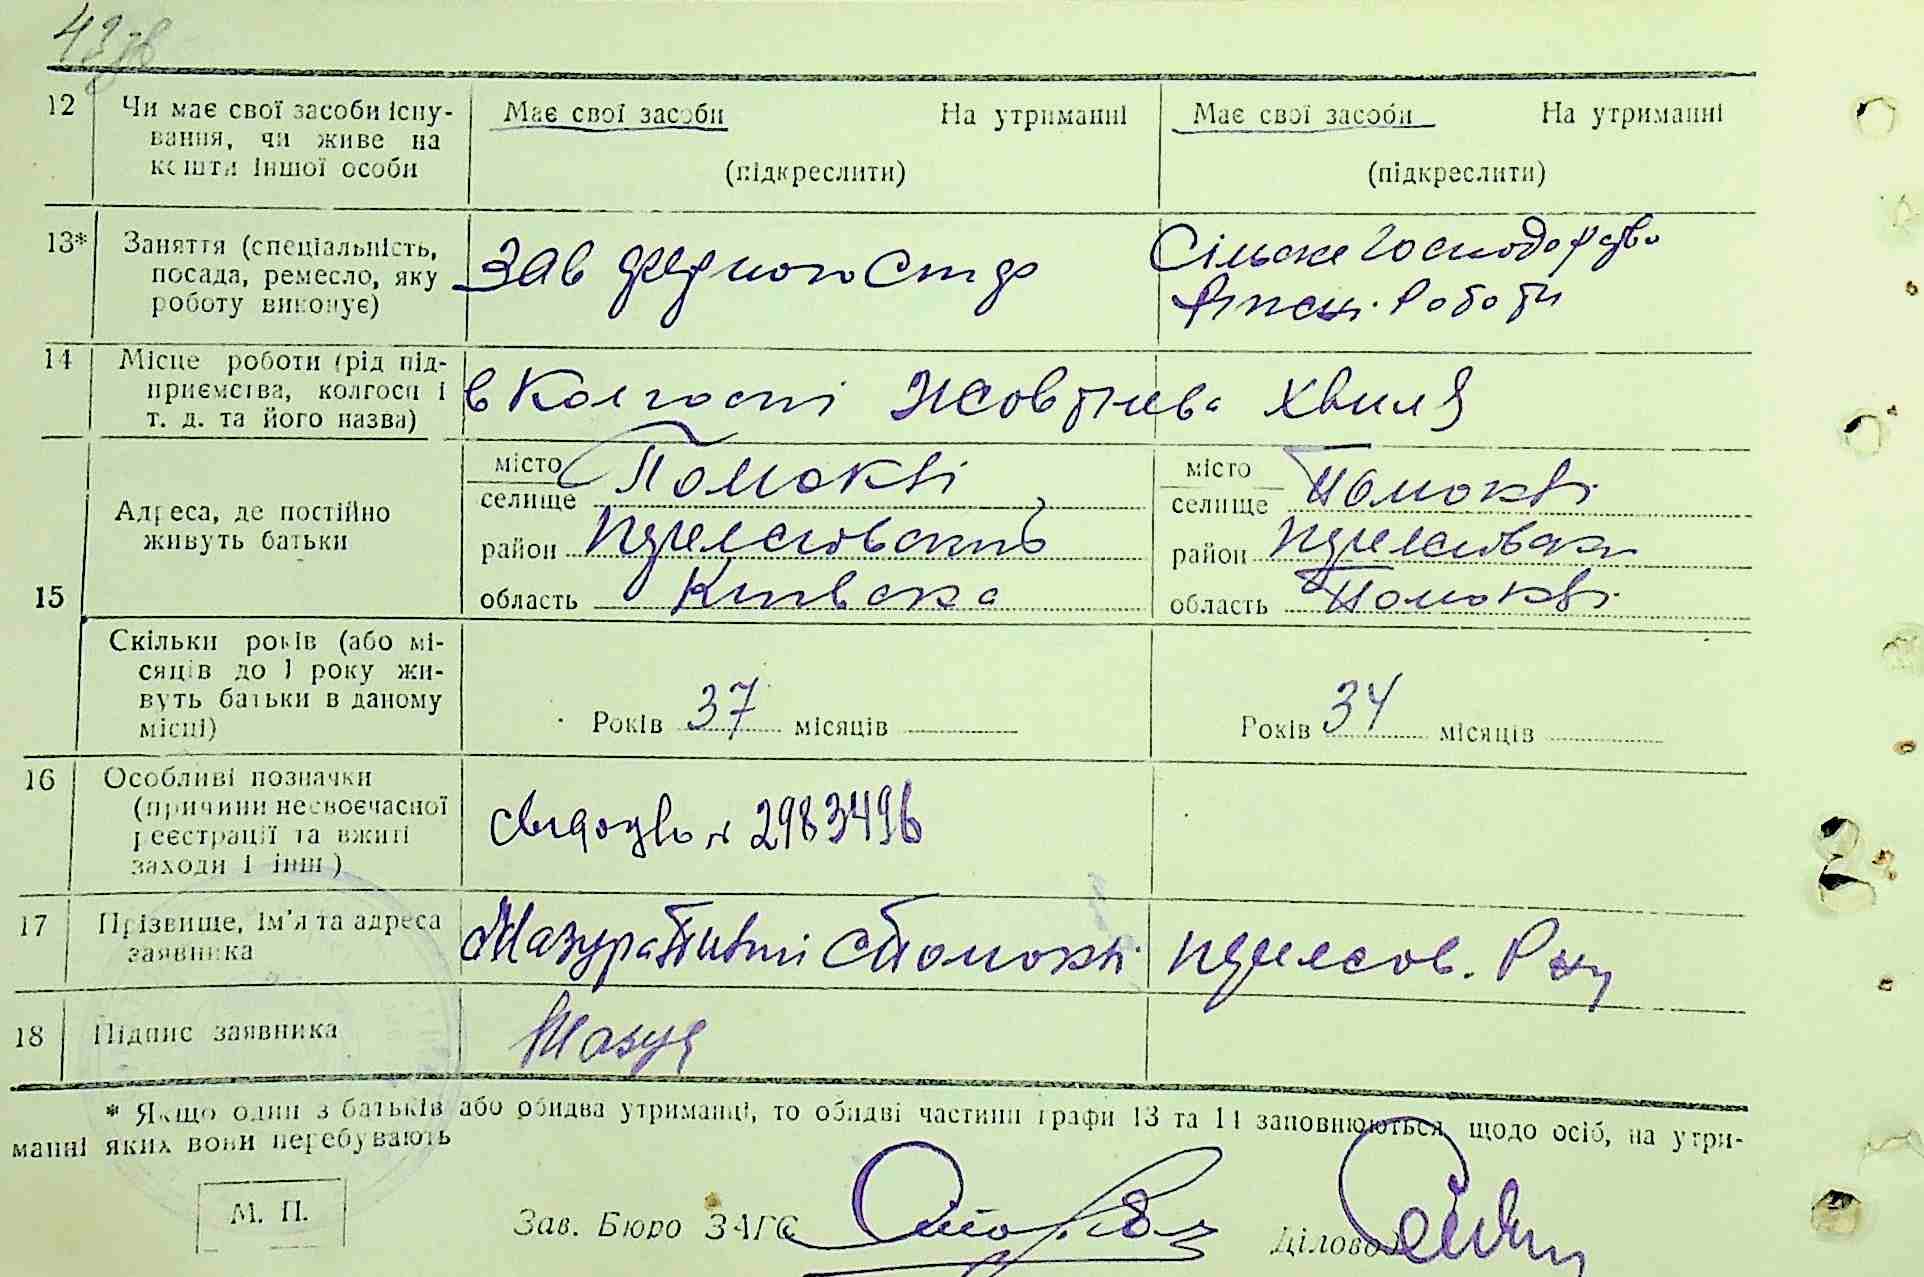 43 зв
12 Чи має свої засоби існу-
вання, чи живе на
кошти іншої особи
Має свої засоби На утриманні
(підкреслити)
Має свої засоби На утриманні
(підкреслити)
13* Заняття (спеціальність,
посада, ремесло, яку
роботу виконує)
Зав
Сільске Господарство
Роботи
14 Місце роботи (рід під-
приємства, колгосп і
т. д. та його назва)
в Колгоспі Жовтнева Хвиля
15 Адреса, де постійно
живуть батьки
місто
селище Помокві
район
область Киівска
місто
селище Помокві
район
область Помокві
Скільки років (або мі-
сяців до 1 року жи-
вуть батьки в даному
місці)
Років 37 місяців
Років 34 місяців
16 Особливі позначки
(причини несвоєчасної
реєстрації та вжиті
заходи і інш)
№ 2983496
17 Прізвище, ім'я та адреса
заявника
Мазура с Помокві
18 Підпис заявника
Мазур
* Якщо один з батьків або обидва утриманці, то обидві частини графи 13 та 14 заповнюються щодо осіб, на утри-
манні яких вони перебувають
М. П.
Зав. Бюро ЗАГС
Діловод